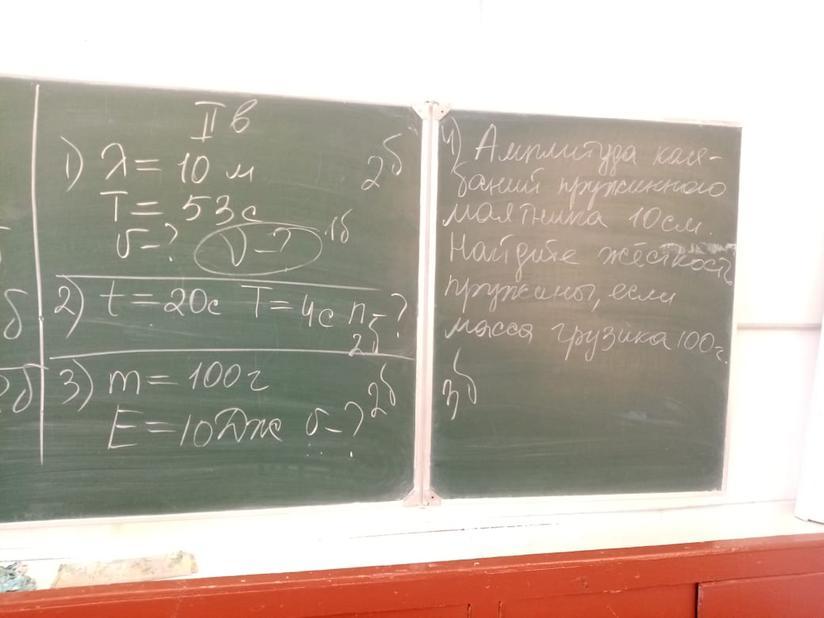 II в
1) λ = 10 м 2б
T = 53с
υ - ? ν - ? 1б
2) t = 20с T = 4с n - ?
2б
3) m = 100г 2б
E = 10Дж υ - ?
4) Амплитуда коле-
баний пружинного
маятника 10см.
Найдите жёсткость
пружины, если
масса грузика 100г.
3б